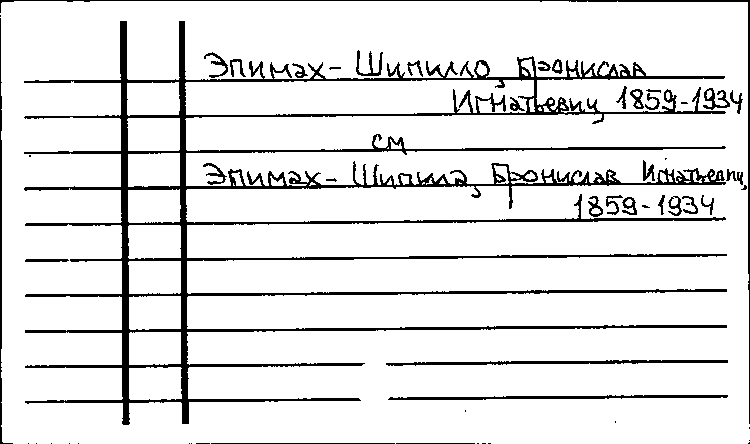 Эпимах-Шипилло, Бронислав
Игнатьевич, 1859-1934
см
Эпимах-Шипила, Бронислав Игнатьевич,
1859-1934